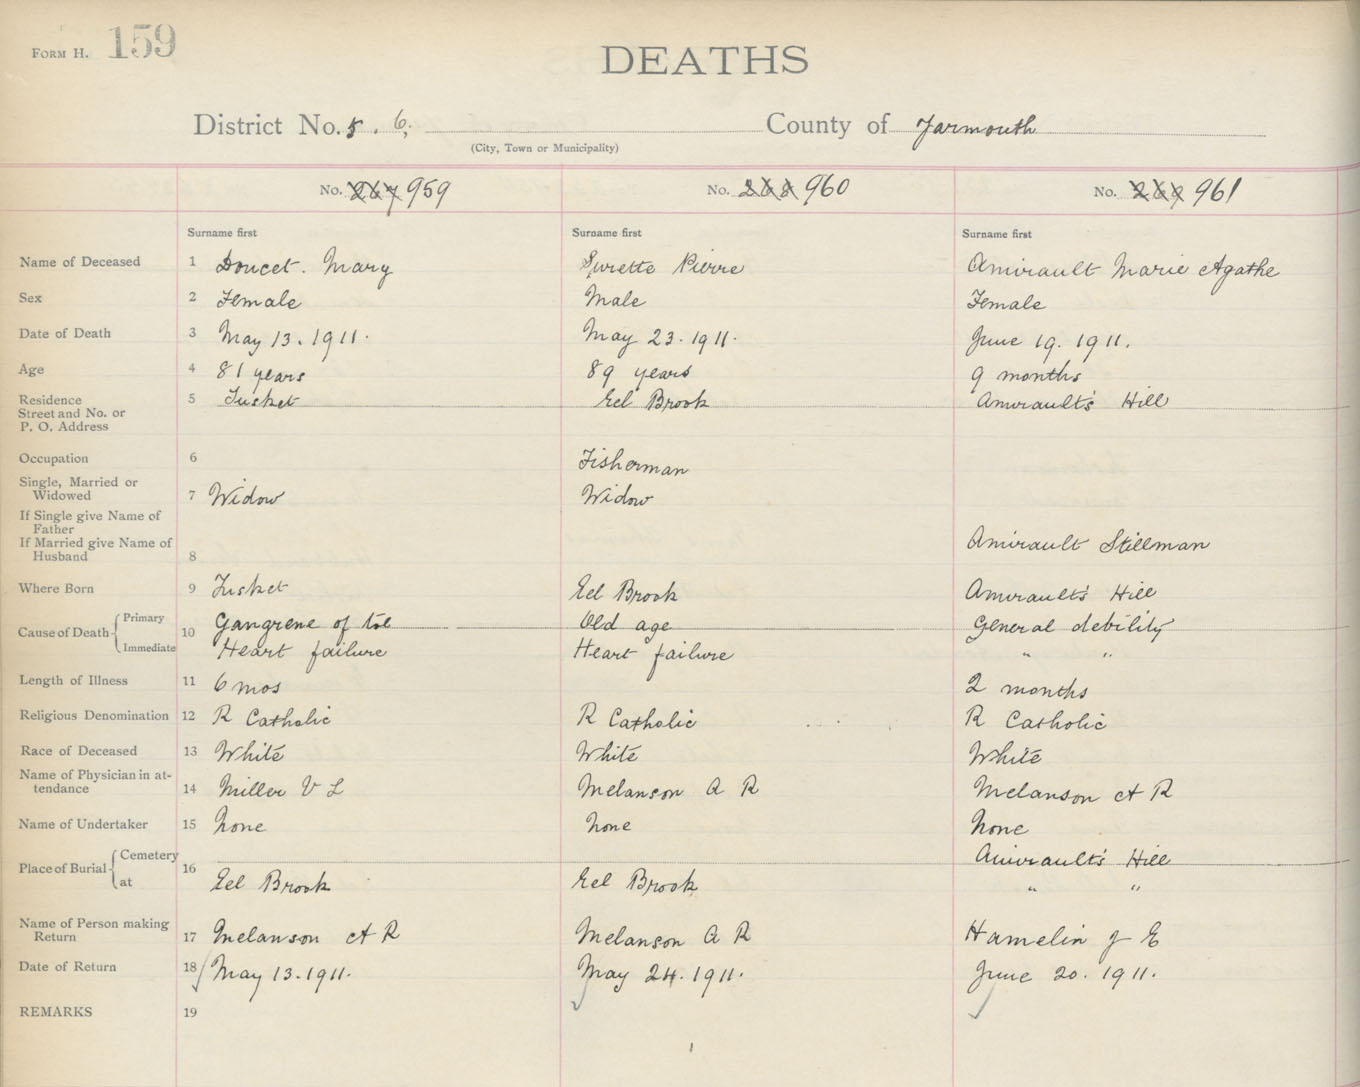 FORM H. 159
DEATHS
District No. 5. 6; County of Yarmouth
(City, Town or Municipality)
No. 267 959 No. 268 960 No. 269 961
Surname first Surname first Surname first
Name of Deceased 1 Doucet. Mary Surette Pierre Amirault Marie Agathe
Sex 2 Female Male Female
Date of Death 3 May 13. 1911. May 23. 1911. June 19. 1911.
Age 4 81 years 89 years 9 months
Residence 5 Tusket Eel Brook Amirault's Hill
Street and No. or
P. O. Address
Occupation 6 Fisherman
Single, Married or
Widowed 7 Widow Widow
If Single give Name of
Father
If Married give Name of Amirault Stillman
Husband 8
Where Born 9 Tusket Eel Brook Amirault's Hill
Cause of Death Primary 10 Gangrene of toe Old age General debility
Immediate Heart failure Heart failure " "
Length of Illness 11 6 mos 2 months
Religious Denomination 12 R Catholic R Catholic R Catholic
Race of Deceased 13 White White White
Name of Physician in at-
tendance 14 Miller V L Melanson A R Melanson A R
Name of Undertaker 15 None None None
Place of Burial Cemetery 16 Amirault's Hill
at Eel Brook Eel Brook " "
Name of Person making
Return 17 Melanson A R Melanson A R Hamelin J E
Date of Return 18 May 13. 1911. May 24. 1911. June 20. 1911.
REMARKS 19